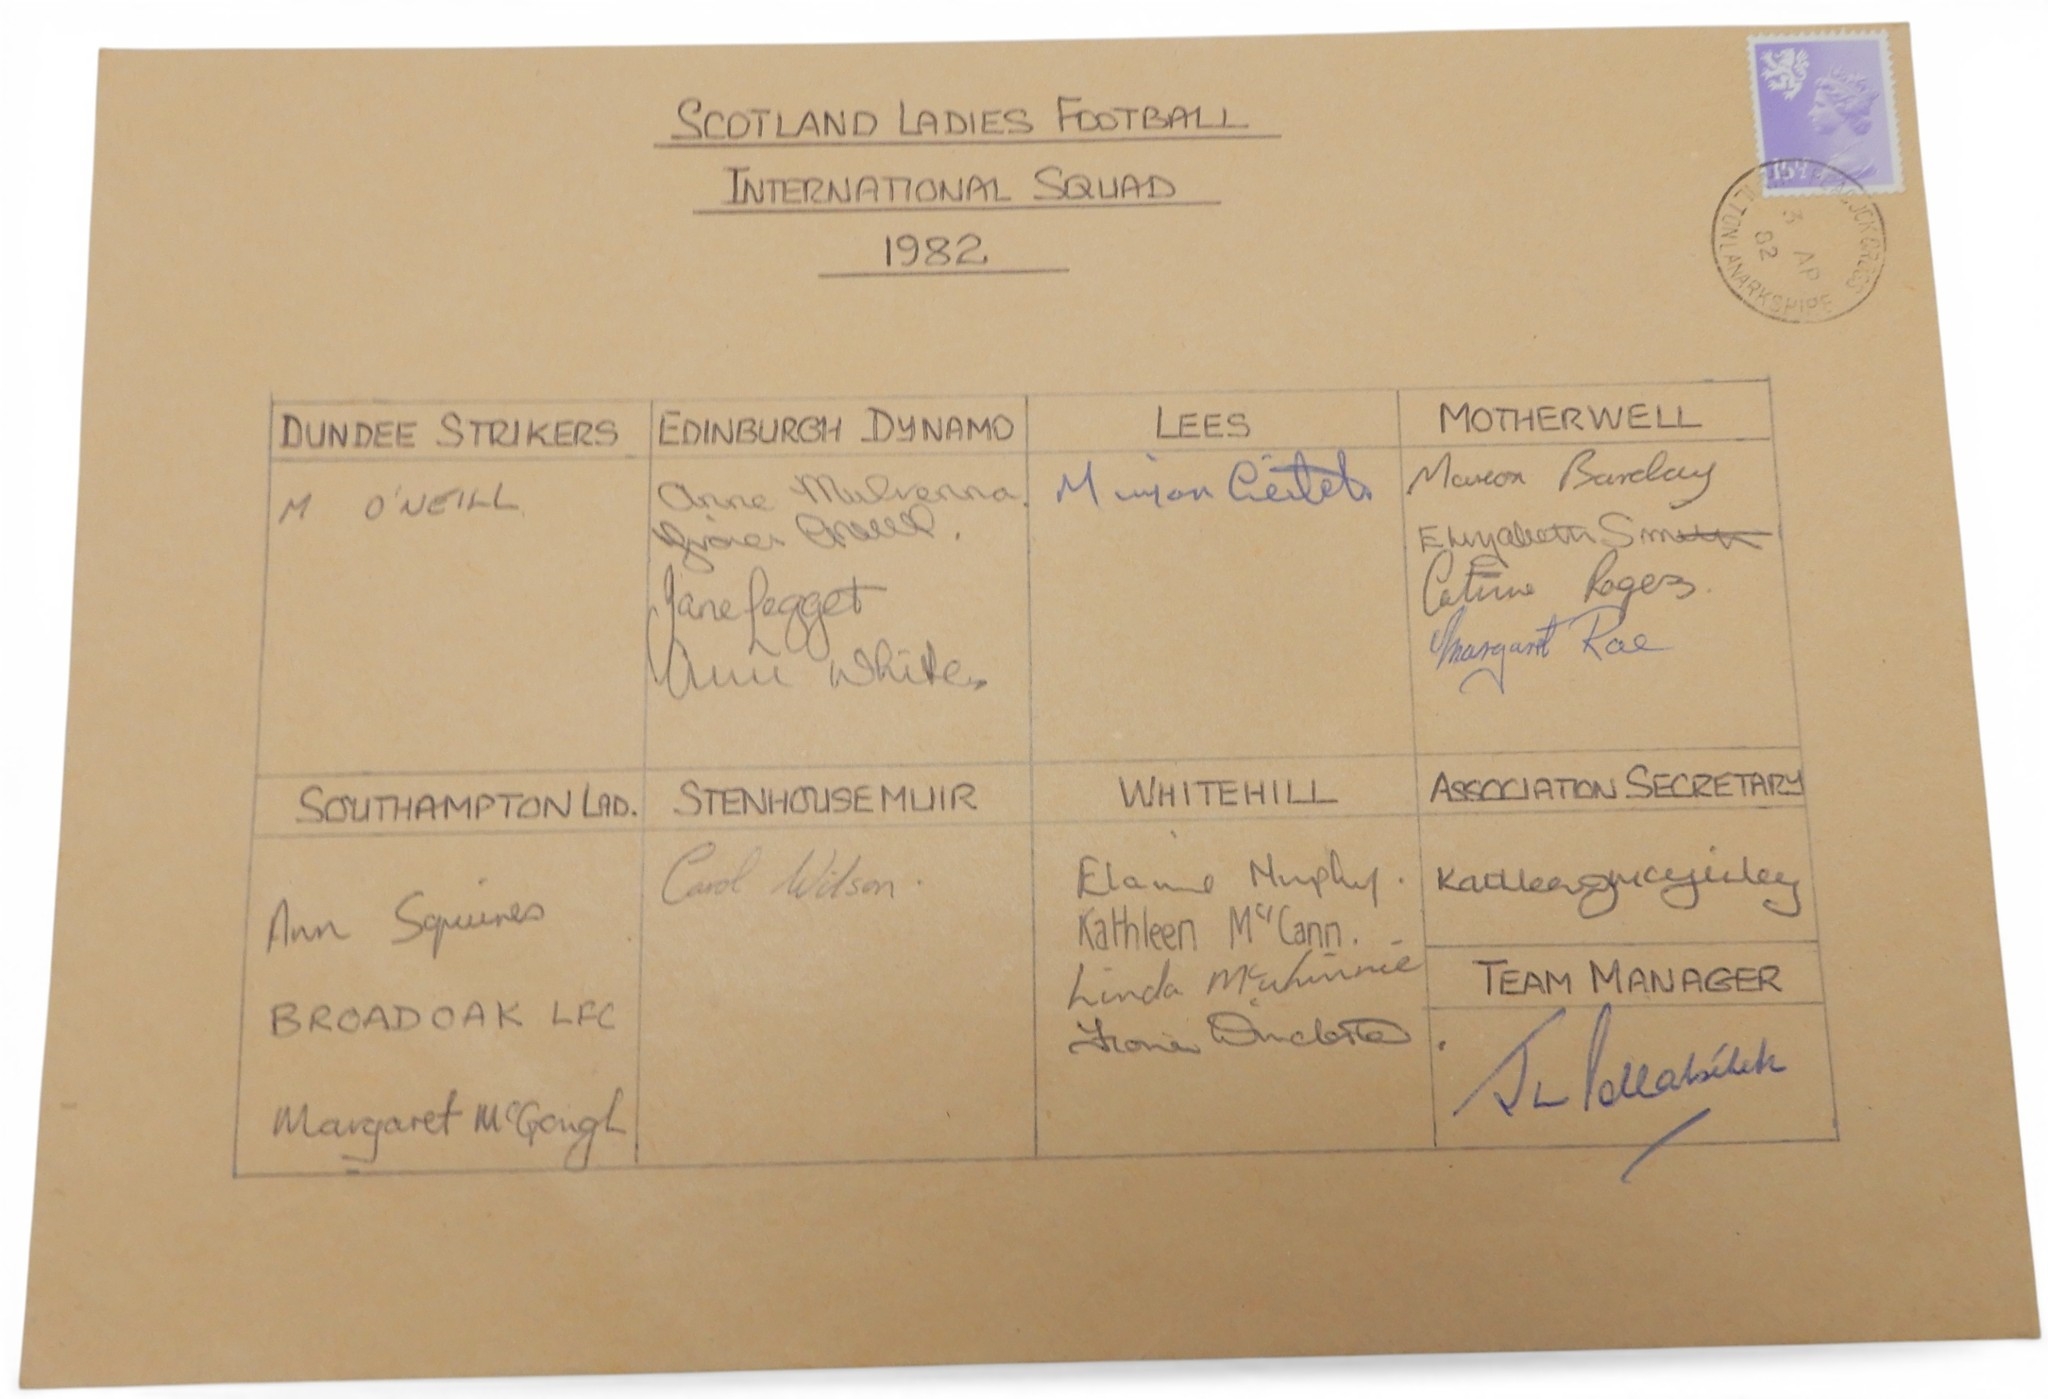 SCOTLAND LADIES FOOTBALL
INTERNATIONAL SQUAD
1982
15½
3 AP
82
LANARKSHIRE
DUNDEE STRIKERS
M O'NEILL
EDINBURGH DYNAMO
Anne Mulvenna.
Jane Legget
Ann White.
LEES
MOTHERWELL
Marion Barclay
Elizabeth Smith
Rogers.
Margaret Rae
SOUTHAMPTON LAD.
Ann Squires
BROADOAK LFC
Margaret McGough
STENHOUSEMUIR
Carol Wilson.
WHITEHILL
Elaine Murphy.
Kathleen McCann.
Linda McWhinnie
ASSOCIATION SECRETARY
Kathleen McGinley
TEAM MANAGER